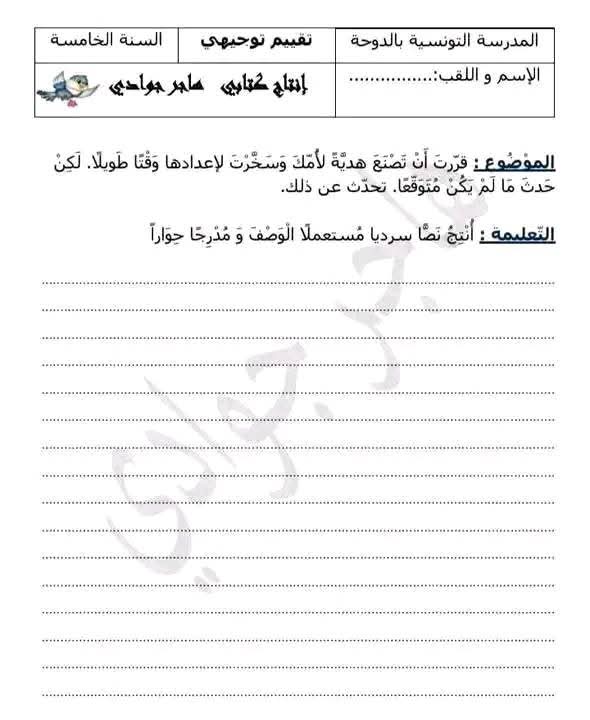 المدرسة التونسية بالدوحة
تقييم توجيهي
السنة الخامسة
الإسم و اللقب:................
إنتاج كتابي هاجر جوادي
الموْضُوع : قرّرتَ أَنْ تَصْنَعَ هديَّةً لأُمّكَ وَسَخَّرْتَ لإعدادها وَقْتًا طَويلًا. لَكِنْ
حَدثَ مَا لَمْ يَكُنْ مُتَوَقّعًا. تحدّث عن ذلك.
التّعليمة : أُنْتِجُ نَصًّا سرديا مُستعملًا الْوَصْفَ وَ مُدْرِجًا حِوَاراً
هاجر جوادي